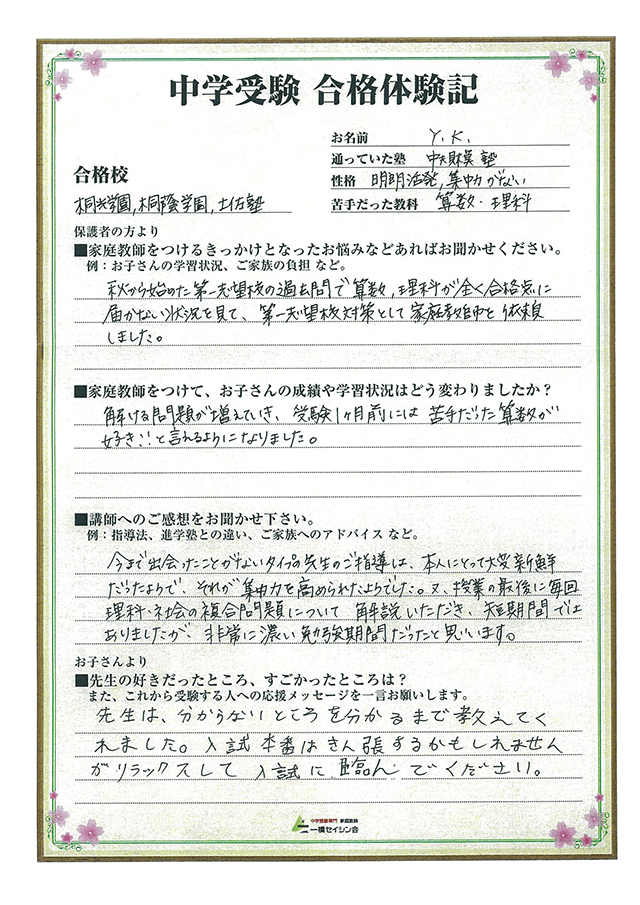 中学受験 合格体験記
お名前 Y.K.
通っていた塾 中夫財莫塾
性格 明朗活発,集中力がない
苦手だった教科 算数・理科
合格校
桐光学園,桐蔭学園,土佐塾
保護者の方より
■家庭教師をつけるきっかけとなったお悩みなどあればお聞かせください。
例：お子さんの学習状況、ご家族の負担 など。
秋から始めた第一志望校の過去問で算数,理科が全く合格点に
届かない状況を見て、第一志望校対策として家庭教師を依頼
しました。
■家庭教師をつけて、お子さんの成績や学習状況はどう変わりましたか？
解ける問題が増えていき、受験1ヶ月前には苦手だった算数が
好き!!と言えるようになりました。
■講師へのご感想をお聞かせ下さい。
例：指導法、進学塾との違い、ご家族へのアドバイス など。
今まで出会ったことがないタイプの先生のご指導は、本人にとって大変新鮮
だったようで、それが集中力を高められたようでした。又、授業の最後に毎回
理科・社会の複合問題について解説いただき、短期間では
ありましたが、非常に濃い勉強期間だったと思います。
お子さんより
■先生の好きだったところ、すごかったところは？
また、これから受験する人への応援メッセージを一言お願いします。
先生は、分からないところを分かるまで教えてく
れました。入試本番はきん張するかもしれません
がリラックスして入試に臨んでください。
中学受験専門 家庭教師
一橋セイシン会